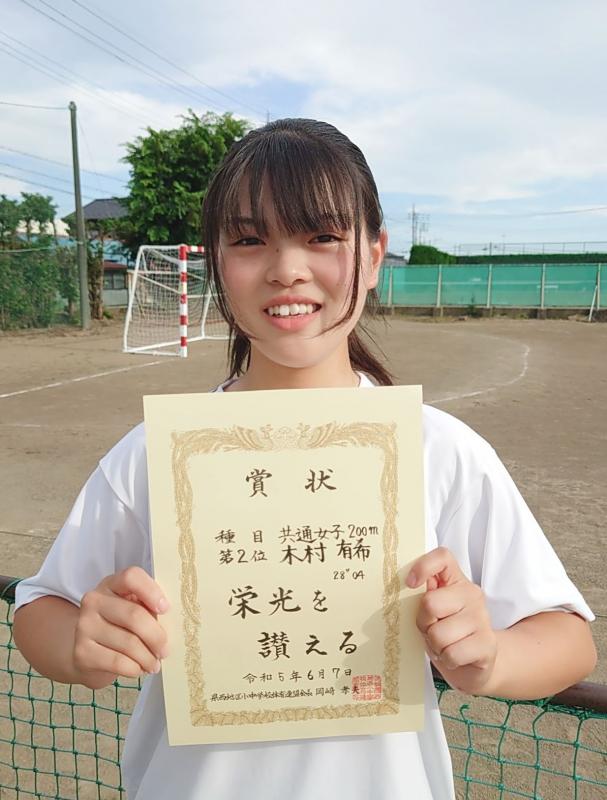 賞状
種目 共通女子200m
第2位 木村 有希
28"04
栄光を
讃える
令和5年6月7日
県西地区小中学校体育連盟会長 岡﨑 孝夫